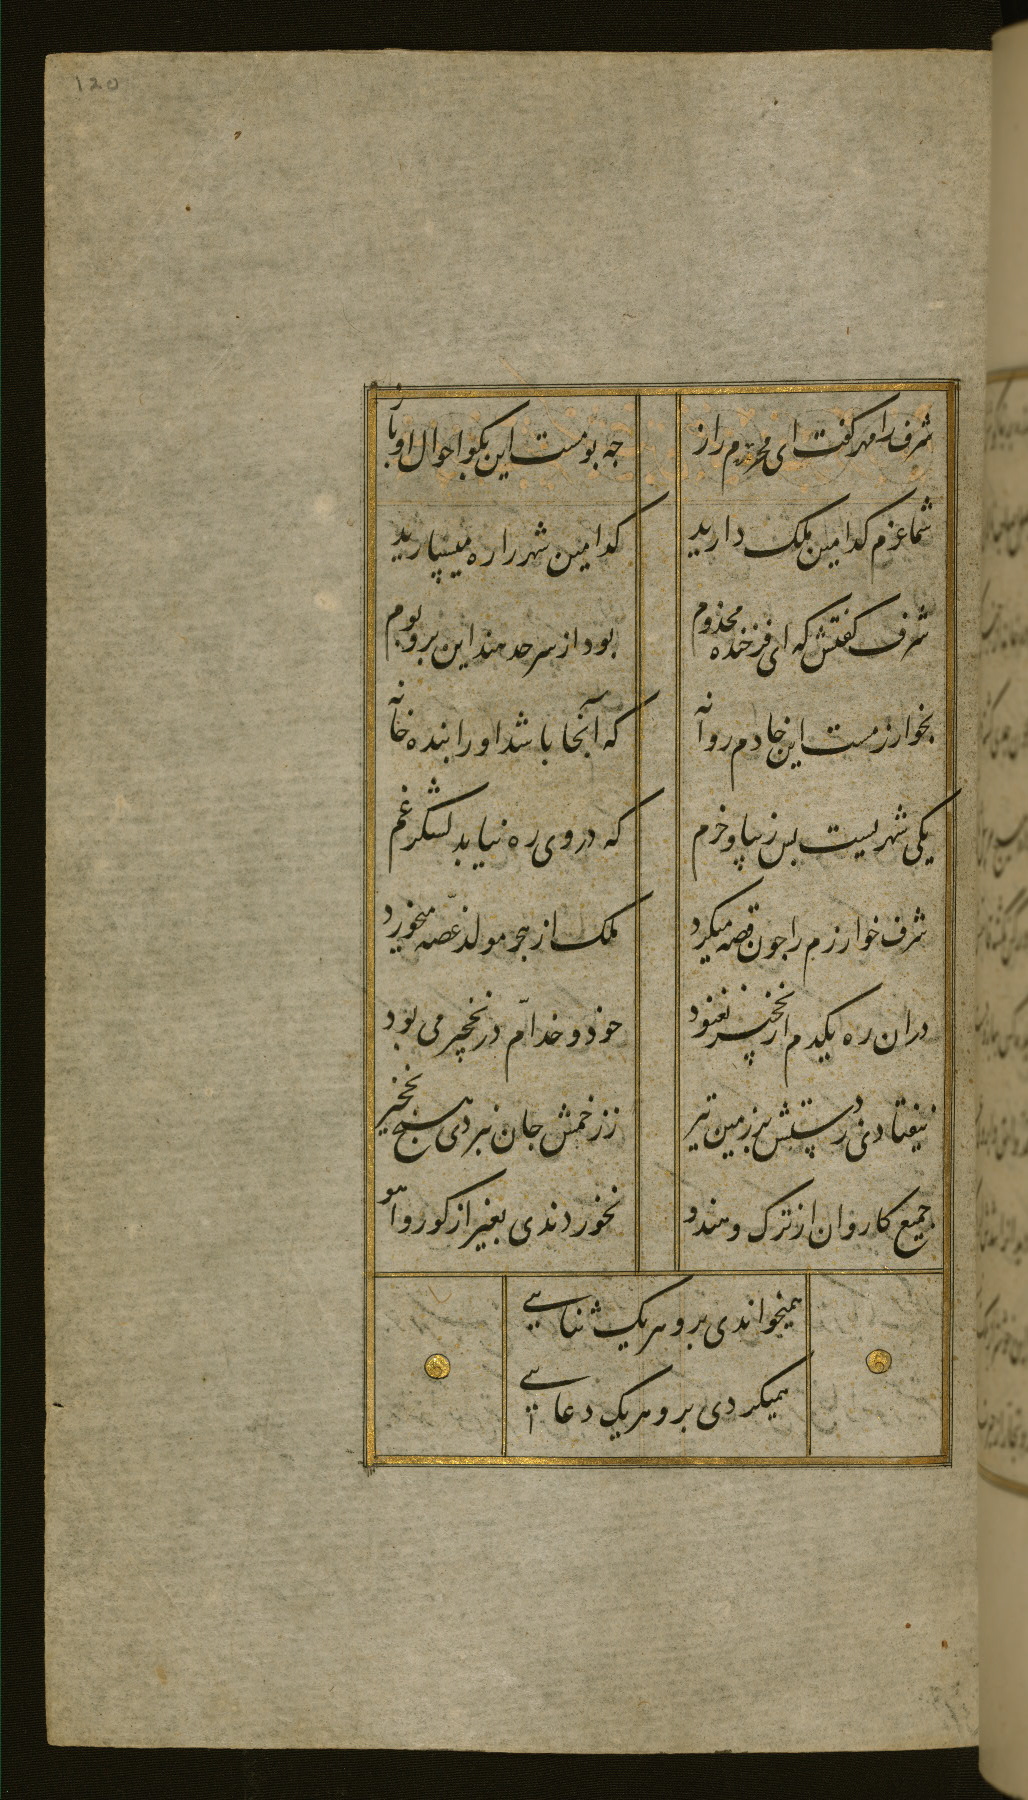 ۱۲۵
شرف را مهر گفت ای محرم راز
چه بومست این بگو احوال او باز
شما عزم کدامین ملک دارید
کدامین شهر را ره میسپارید
شرف گفتش که ای فرخنده مخدوم
بود از سرحد هند این بر و بوم
بخوارزمست این خادم روانه
که آنجا باشد او را بنده خانه
یکی شهریست بس زیبا و خرم
که در وی ره نیابد لشکر غم
شرف خوارزم را چون قصه میکرد
ملک از هجر مولد غصه میخورد
دران ره یکدم از نخچیر نغنود
خود و خدام در نخچیر می بود
نیفتادی ز شستش بر زمین تیر
ز زخمش جان نبردی هیچ نخچیر
جمیع کاروان از ترک و هندو
نخوردندی بغیر از گور و آهو
همیخواندی برو هر یک ثنایی
همیکردی برو هر یک دعایی